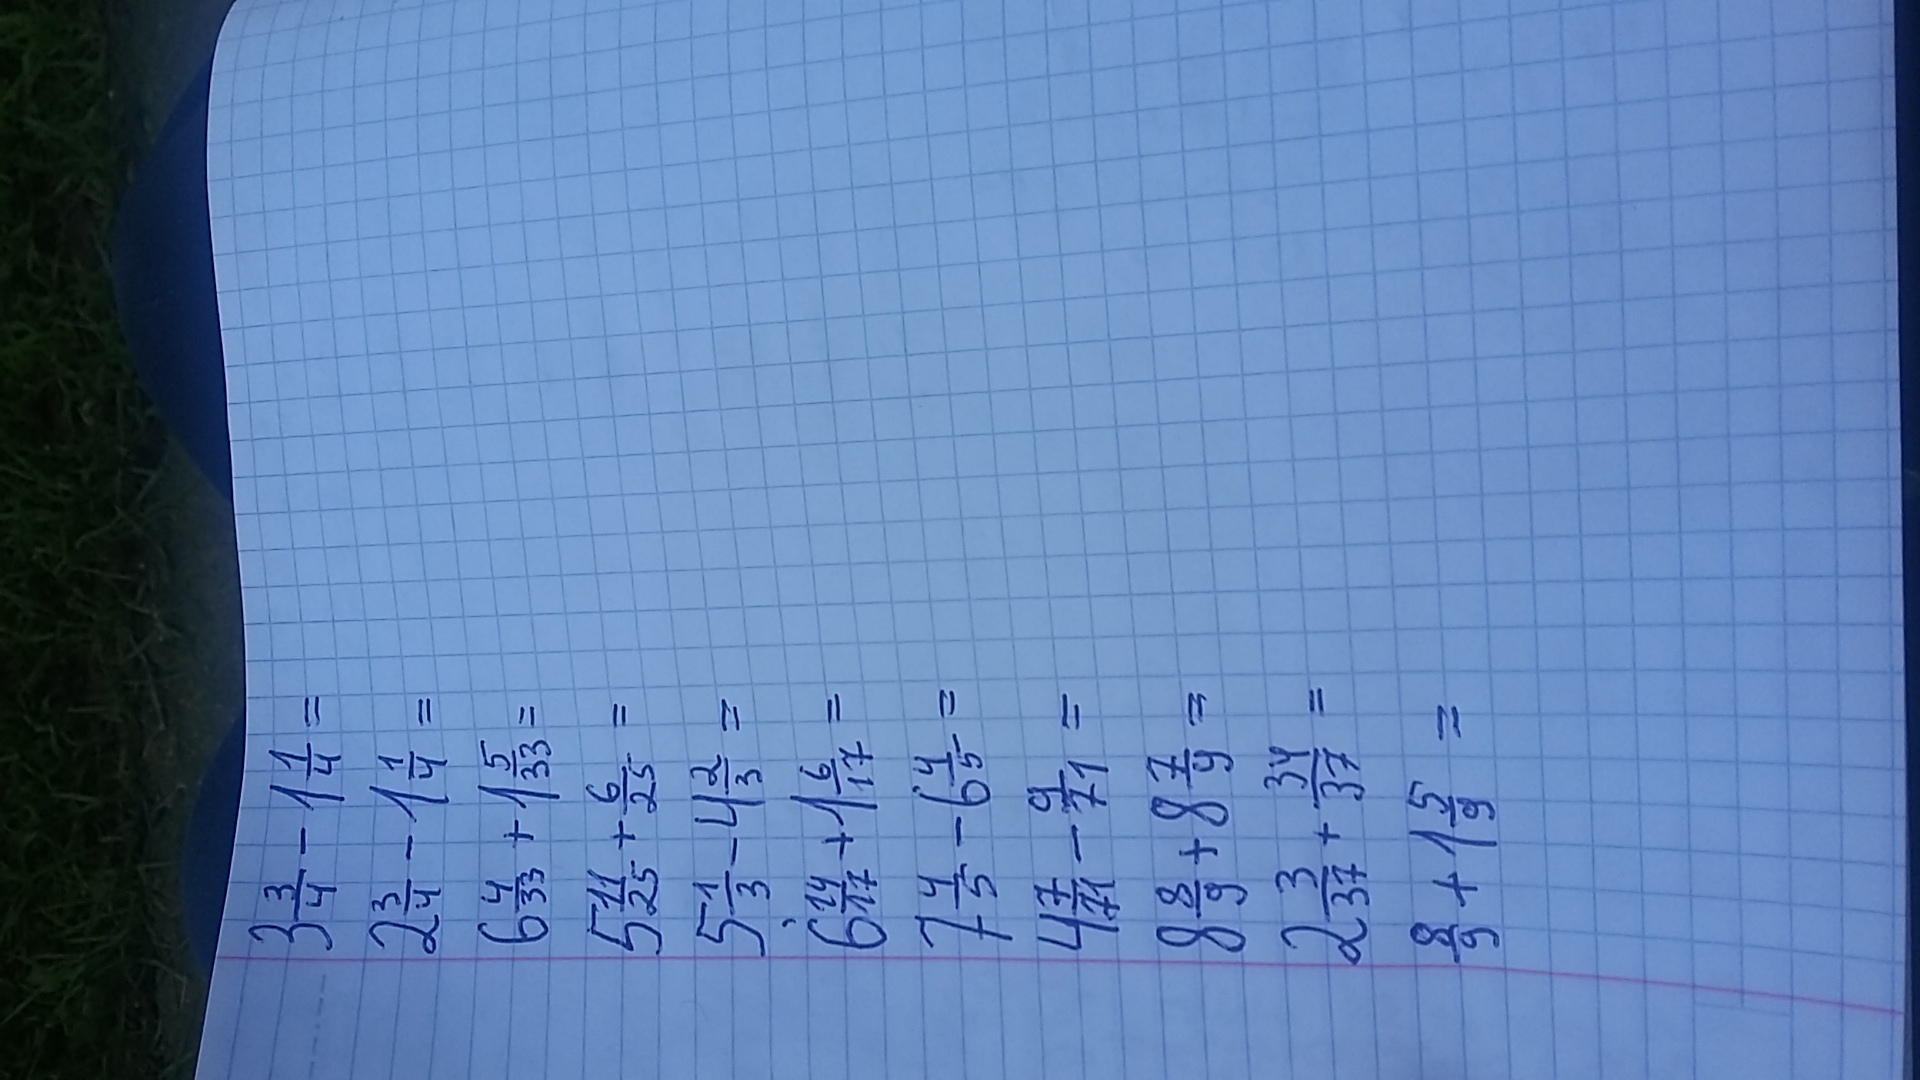 3 3/4 - 1 1/4 =
2 3/4 - 1 1/4 =
6 4/33 + 1 5/33 =
5 11/25 + 6/25 =
5 1/3 - 4 2/3 =
6 14/17 + 1 6/17 =
7 4/5 - 6 4/5 =
4 7/71 - 9/71 =
8 8/9 + 8 7/9 =
2 3/37 + 34/37 =
8/9 + 1 5/9 =